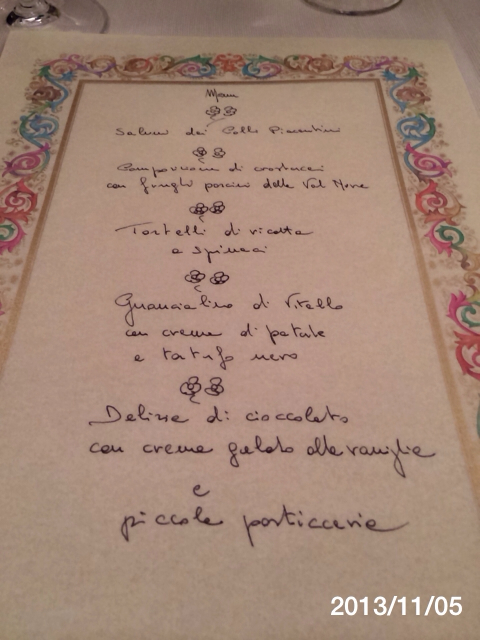 Menu
Salumi dei Colli Piacentini
Composizione di crostacei
con funghi porcini della Val Nure
Tortelli di ricotta
e spinaci
Guancialino di Vitello
con crema di patate
e tartufo nero
Delizie di cioccolato
con crema gelato alla vaniglia
e
piccola pasticceria
2013/11/05